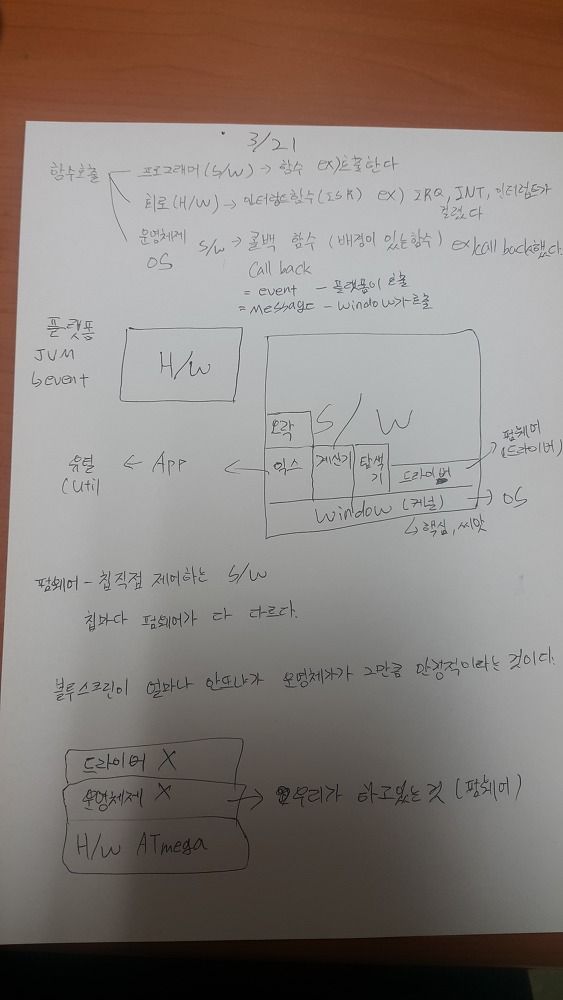 3/21
함수호출 - 프로그래머(S/W) → 함수 ex) 호출한다
회로(H/W) → 인터럽트함수(ISR) ex) IRQ, INT, 인터럽트가 걸렸다
운영체제 OS S/W → 콜백 함수 (배경이 있는함수) ex) call back했다.
Call back
= event - 플랫폼이 호출
= message - window가 호출
플랫폼
JVM
↳ event
H/W
S/W
오락
익스
계산기
탐색기
드라이버
→ 펌웨어 (드라이버)
window (커널) → OS
↳ 핵심, 씨앗
유틸 ← App ←
(Util
펌웨어 - 칩직접 제어하는 S/W
칩마다 펌웨어가 다 다르다.
블루스크린이 얼마나 안뜨냐가 운영체제가 그만큼 안정적이라는 것이다.
드라이버 X
운영체제 X → 우리가 하고있는 것 (펌웨어)
H/W ATmega